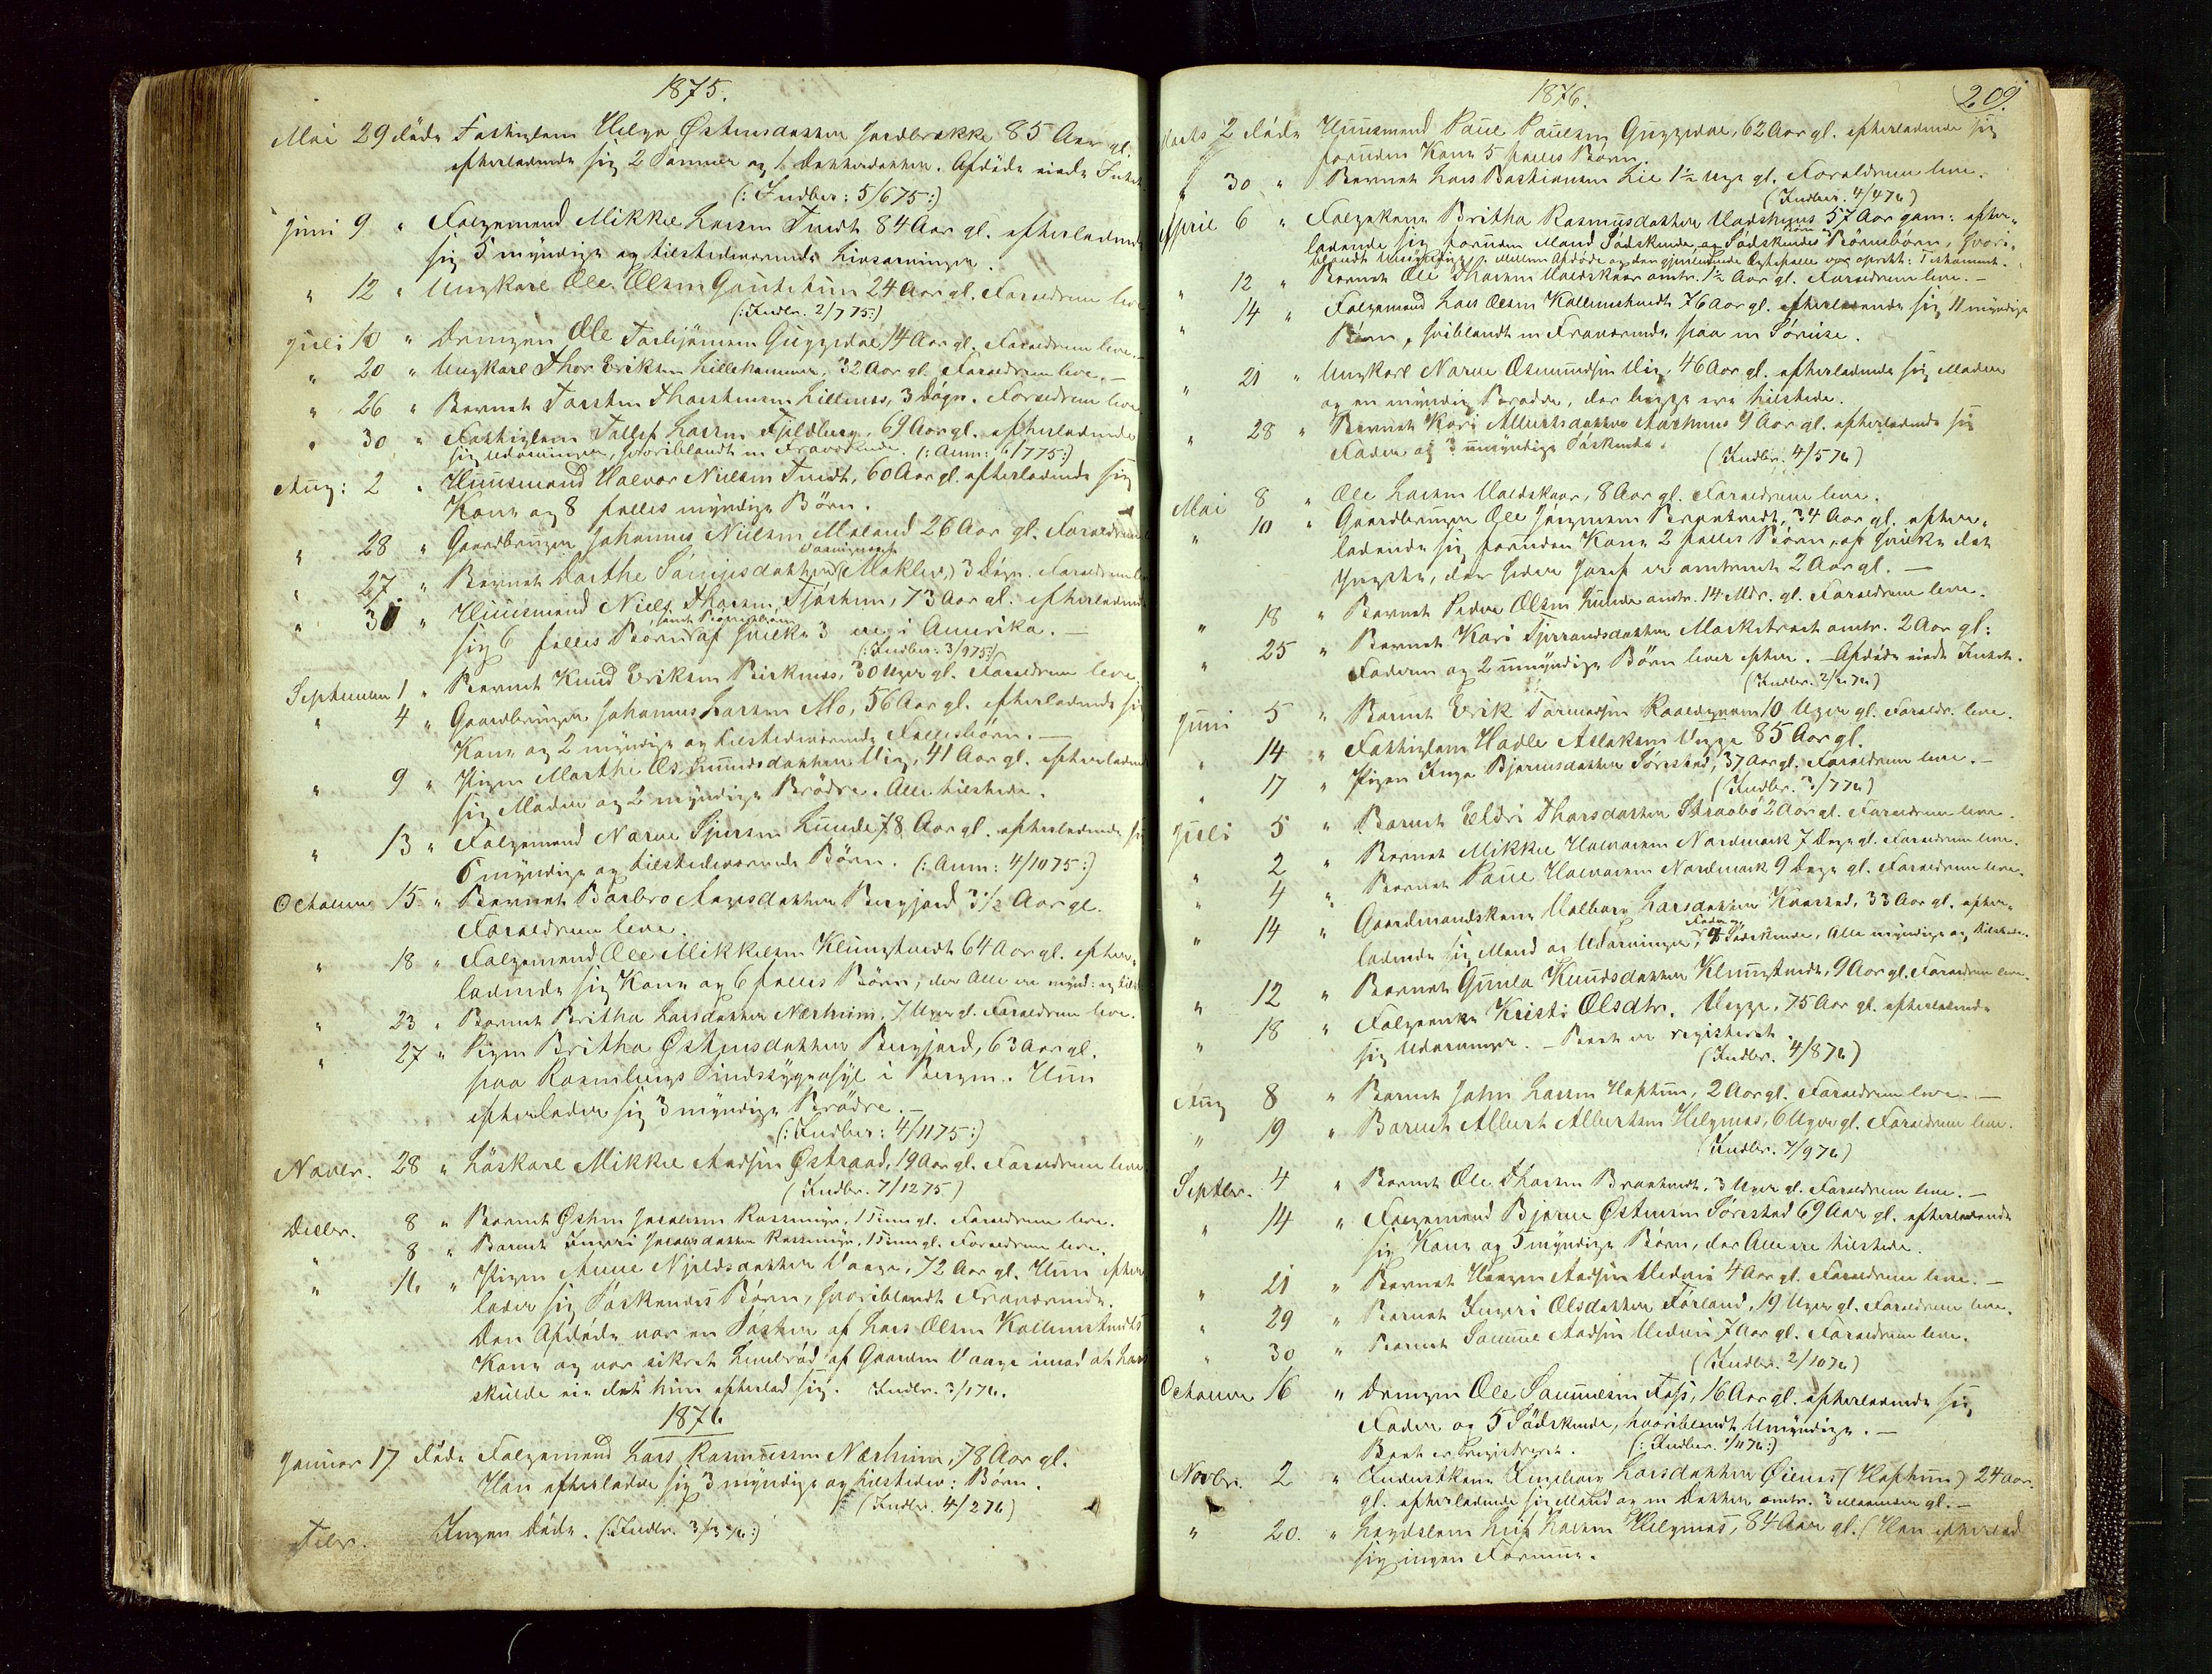 1875.
Mai 29 døde Fattiglem Helga Østensdatter 85 Aar gl.
efterladende sig 2 Sønner og 1 Datterdatter. Afdøde eiede Intet
(: Indber: 5/6 75 :)
Juni 9 " Folgemand Mikkel Larsen Tvedt 84 Aar gl. efterladende
sig 5 myndige og tilstedeværende Livsarvinger.
" 12 " Ungkarl Ole Olsen 24 Aar gl. Forældrene leve
(: Indbr. 2/7 75 :)
Juli 10 " Drengen Ole 14 Aar gl. Forældrene leve.
" 20 " Ungkarl Thor Eriksen Lillehammer, 32 Aar gl. Forældrene leve. —
" 26 " Barnet Torsten Thorstensen 3 Døgn. Forældrene leve
" 30 " Fattiglem Tollef Larsen Fjeldberg, 69 Aar gl. efterladende
sig Udarvinger, hvoriblandt en Fraværende. (: Anm: 6/7 75 :)
Aug: 2 " Huusmand Halvor Nielsen Tvedt, 60 Aar gl. efterladende sig
Kone og 8 fælles myndige Børn.
" 28 " Gaardbruger Johannes Nielsen Maland 26 Aar gl. Forældrene
" 27 " Barnet Dorthe 3 Døgn. Forældrene
" 31 " Huusmand Niels Thorsen 73 Aar gl. efterladende
sig 6 fælles Børn af hvilke 3 ere i Amerika. —
(: Indber: 3/9 75 :)
September 1 " Barnet Knud Eriksen Birknes, 30 Uger gl. Forældrene leve.
" 4 " Gaardbruger Johannes Larsen Mo, 56 Aar gl. efterladende sig
Kone og 2 myndige og tilstedeværende Fællesbørn. —
" 9 " Pigen Marthe Osmundsdatter Vig, 41 Aar gl. efterladende
sig Moder og 2 myndige Brødre. Alle tilstede.
" 13 " Folgemand Narve Sjursen Lunde 78 Aar gl. efterladende sig
6 myndige og tilstedeværende Børn. (: Anm: 4/10 75 :)
October 15 " Barnet Barbro Aagesdatter Bergjord 3 1/2 Aar gl.
Forældrene leve.
" 18 " Folgemand Ole Mikkelsen Klungtvedt 64 Aar gl. efter-
ladende sig Kone og 6 fælles Børn, der Alle ere mynd: og
" 23 " Barnet Britha Larsdatter Nerheim, 7 Uger gl. Forældrene leve.
" 27 " Pigen Britha Østensdatter Bergjord, 63 Aar gl.
paa Rosenbergs Sindssygeasyl i Bergen. Hun
efterlader sig 3 myndige Brødre. —
(: Indber: 4/11 75 :)
Novbr. 28 " Løskarl Mikkel Aadsen Østraad, 19 Aar gl. Forældrene leve
(Indbr. 7/12 75)
Decbr. 8 " Barnet Østen Jacobsen 1 Time gl. Forældrene leve.
" 8 " Barnet Ingeri Jacobsdatter 1 Time gl. Forældrene leve.
" 11. " Pigen Anne Njeldsdatter Vaage, 72 Aar gl. Hun efter-
lader sig Søskendes Børn, hvoriblandt Fraværende.
Den Afdøde var en Søster af Lars Olsen Kallemtvedts
Kone og var sikret Levebrød af Gaarden Vaage imod at Lars
skulde eie det hun efterlod sig. Indbr. 3/1 76.
1876
Januar 17 døde Folgemand Lars Rasmussen Nerheim, 78 Aar gl.
Han efterladte sig 3 myndige og tilstedev: Børn.
(Indbr. 4/2 76)
Febr. Ingen døde. (: Indbr. 3/3 76 :)
1876.
209.
Marts 2 døde Huusmand Poul Poulsen 62 Aar gl. efterladende sig
foruden Kone 5 fælles Børn.
" 30 " Barnet Lars Bastiansen Lie 1 1/2 Uge gl. Forældrene leve.
(Indber. 4/4 76)
April 6 " Folgekone Britha Rasmusdatter 57 Aar gam: efter-
ladende sig foruden Mand Sødskende og Sødskendes Børnebørn, hvori-
blandt Mellem Afdøde og den gjenlevende Ægtefælle var opret: Testament.
" 12 " Barnet Ole Thorsen Valdskaar omtr. 1 1/2 Aar gl. Forældrene leve. —
" 14 " Folgemand Lars Olsen Kallemtvedt 76 Aar gl. efterladende sig 11 myndige
Børn, hvoriblandt en Fraværende paa en Søreise.
" 21 " Ungkarl Narve Osmundsen Vig, 46 Aar gl. efterladende sig Moder
og en myndig Broder, der begge ere tilstede.
" 28 " Barnet Kari Albertsdatter 9 Aar gl. efterladende sig
Fader og 3 umyndige Søskende.
(Indbr. 4/5 76)
Mai 8 " Ole Larsen Valdskaar, 8 Aar gl. Forældrene leve.
" 10 " Gaardbruger Ole Jørgensen 34 Aar gl. efter-
ladende sig foruden Kone 2 fælles Børn, af hvilke det
Yngste, der heder Josef er omtrent 2 Aar gl. —
" 18 " Barnet Peder Olsen Lunde omtr. 14 Mdr. gl. Forældrene leve.
" 25 " Barnet Kari omtr. 2 Aar gl:
Faderen og 2 umyndige Børn lever efter. — Afdøde eiede Intet.
(Indbr. 2/6 76)
Juni 5 " Barnet Erik Tormodsen 10 Uger gl. Forældr. leve.
" 14 " Fattiglem Hadle Aslaksen Vegge 85 Aar gl.
" 17 " Pigen Inga Bjørnsdatter Sørestad, 37 Aar gl. Forældrene leve. —
(Indbr. 3/7 76)
Juli 5 " Barnet Eldri Thorsdatter 2 Aar gl. Forældrene leve.
" 2 " Barnet Mikkel Halvorsen Nordmark 7 Dage gl. Forældrene leve.
" 4 " Barnet Poul Halvorsen Nordmark 9 Dage gl. Forældrene leve.
" 14 " Gaardmandskone Valborg Larsdatter 33 Aar gl. efter-
ladende sig Mand og Udarvinger, Fader og 4 Sødskende, Alle myndige og tilstede.
" 12 " Barnet Gunla Knudsdatter Klungtvedt, 9 Aar gl. Forældrene leve.
" 18 " Folgeenke Kristi Olsdtr. Vegge, 75 Aar gl. efterladende
sig Udarvinger. — Boet er registreret.
(Indbr. 4/8 76)
Aug 8 " Barnet John Larsen 2 Aar gl. Forældrene leve. —
" 19 " Barnet Albert Albertsen Helgenes, 6 Uger gl. Forældrene leve.
(Indbr. 7/9 76)
Septbr. 4 " Barnet Ole Thorsen 3 Uger gl. Forældrene leve. —
" 14 " Folgemand Bjørne Østensen Sørestad 69 Aar gl. efterladende
sig Kone og 5 myndige Børn, der Alle ere tilstede.
" 21 " Barnet Haagen Aadsen 4 Aar gl. Forældrene leve. —
" 29 " Barnet Ingeri Olsdatter Førland, 19 Uger gl. Forældrene leve.
" 30 " Barnet Samuel Aadsen 7 Aar gl. Forældrene leve.
(Indbr. 2/10 76)
October 16 " Drengen Ole Samuelsen Foss, 16 Aar gl. efterladende sig
Fader og 5 Sødskende, hvoriblandt Umyndige. —
Boet er registreret. (: Indber. 1/11 76 :)
Novbr. 2 " Inderstkone Ingeborg Larsdatter Øienes 24 Aar
gl. efterladende sig Mand og en Datter omtr. 3 Maaneder gl. —
" 20. " Lægdslem Leif Larsen Helgenes, 84 Aar gl. (Han efterlod
sig ingen Formue.